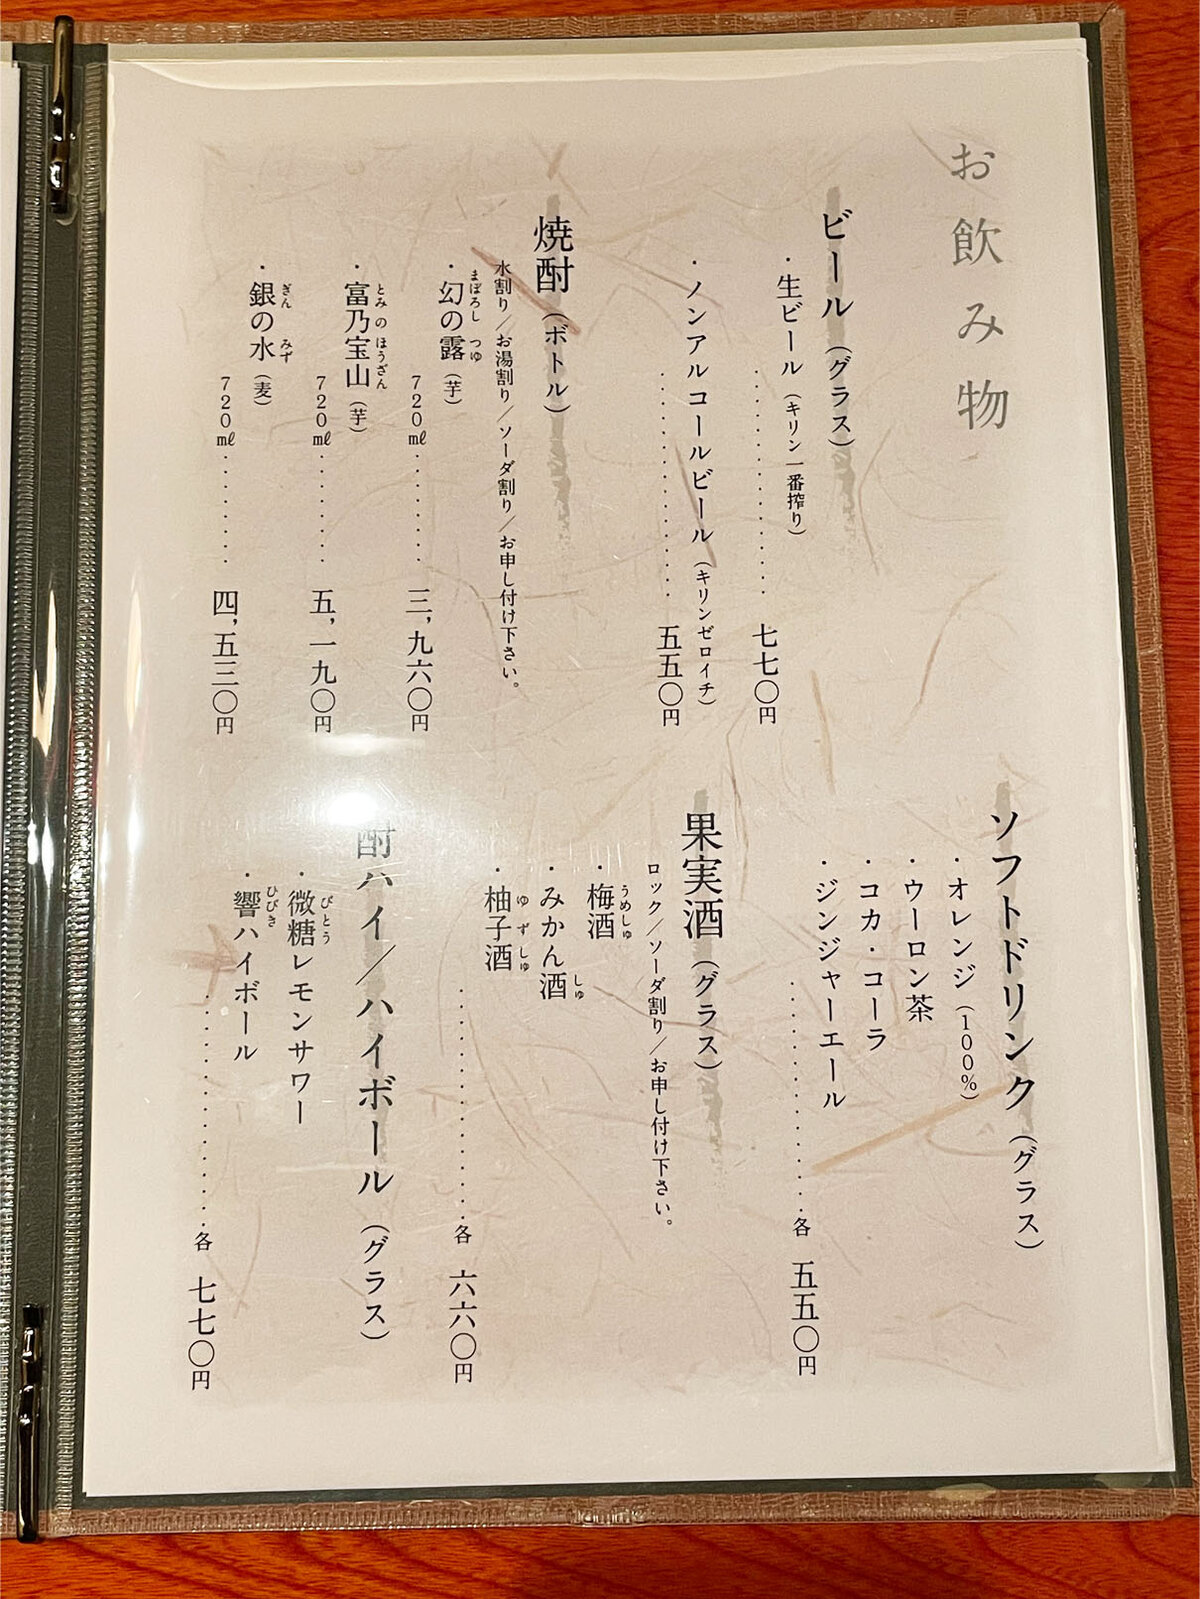 お飲み物
ビール（グラス）
・生ビール（キリン一番搾り）
七七〇円
・ノンアルコールビール（キリンゼロイチ）
五五〇円
焼酎（ボトル）
水割り／お湯割り／ソーダ割り／お申し付け下さい。
・幻の露（芋）
まぼろし つゆ
720㎖ 三,九六〇円
・富乃宝山（芋）
とみのほうざん
720㎖ 五,一九〇円
・銀の水（麦）
ぎん みず
720㎖ 四,五三〇円
ソフトドリンク（グラス）
・オレンジ（100％）
・ウーロン茶
・コカ・コーラ
・ジンジャーエール
各 五五〇円
果実酒（グラス）
ロック／ソーダ割り／お申し付け下さい。
・梅酒
うめしゅ
・みかん酒
しゅ
・柚子酒
ゆずしゅ
各 六六〇円
酎ハイ／ハイボール（グラス）
・微糖レモンサワー
びとう
・響ハイボール
ひびき
各 七七〇円